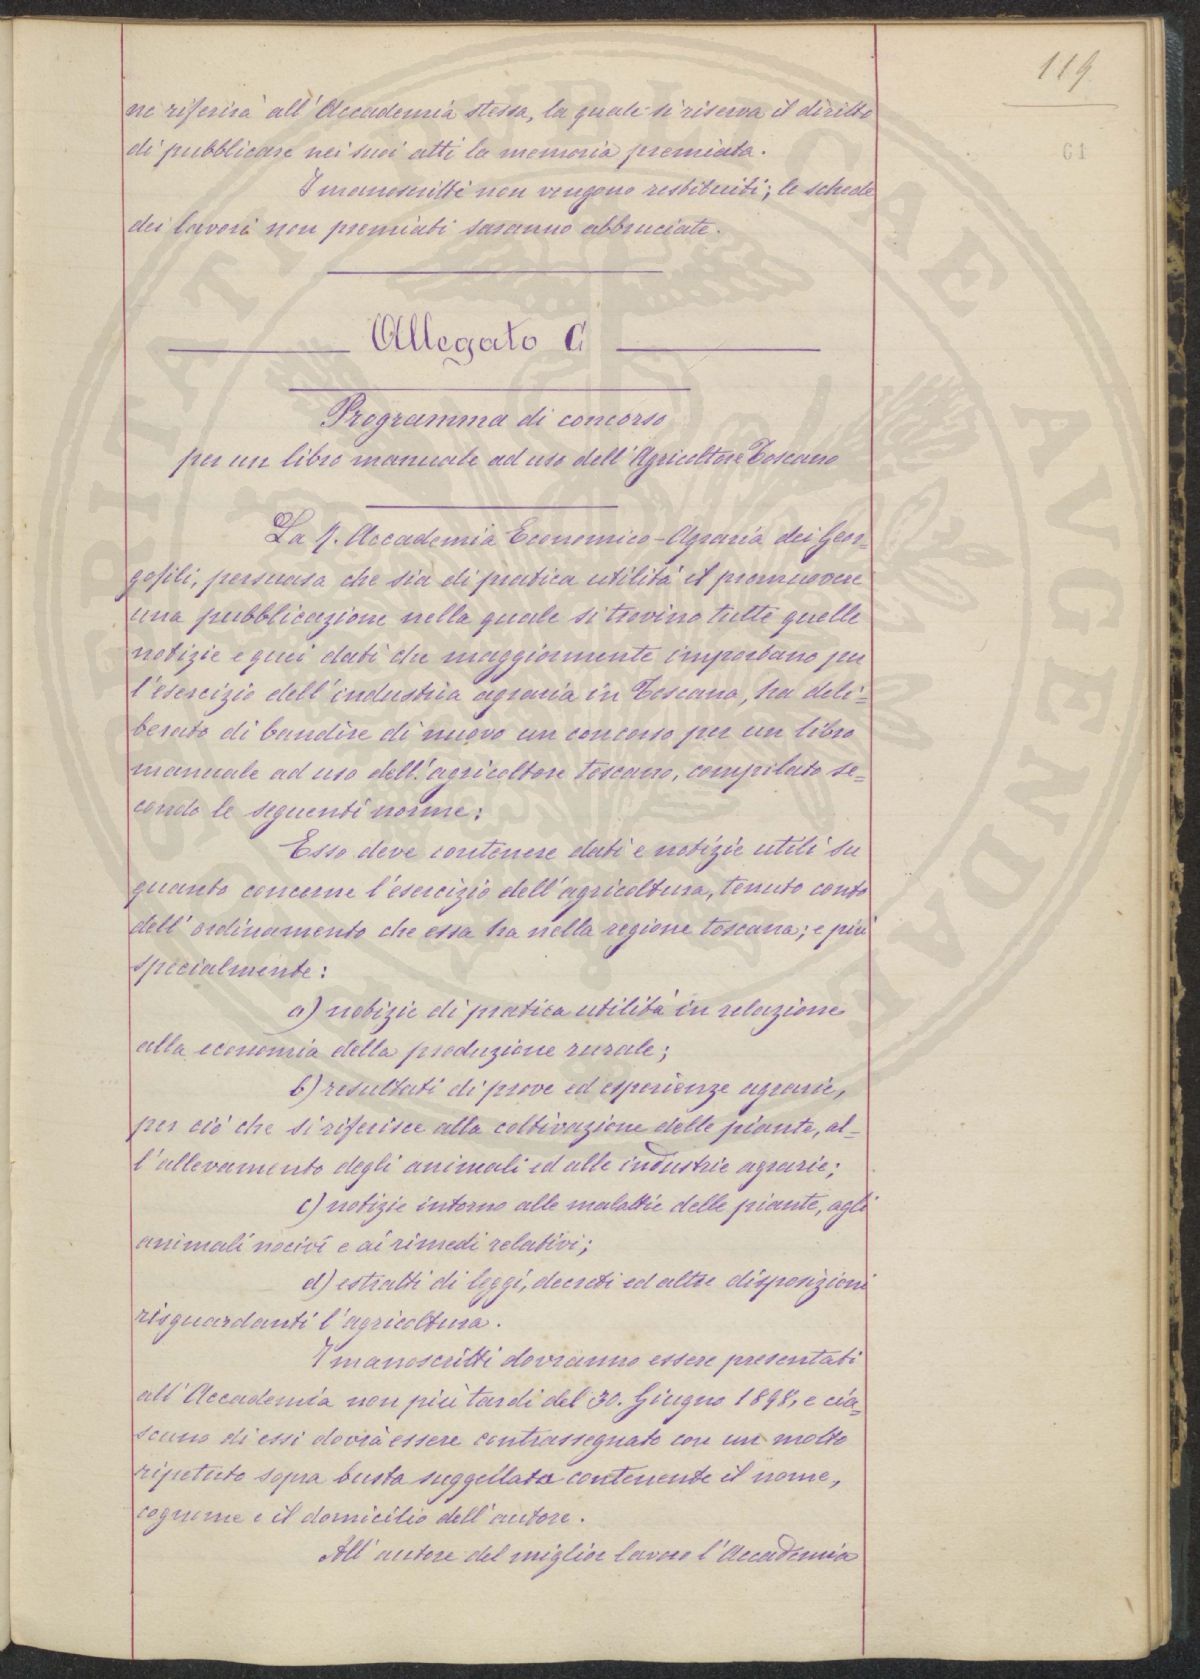 119
61
ne riferirà all'Accademia stessa, la quale si riserva il diritto
di pubblicare nei suoi atti la memoria premiata.
I manoscritti non vengono restituiti; le schede
dei lavori non premiati saranno abbruciate.
Allegato C
Programma di concorso
per un libro manuale ad uso dell'Agricoltore Toscano
La R. Accademia Economico-Agraria dei Geor=
gofili, persuasa che sia di pratica utilità il promuovere
una pubblicazione nella quale si trovino tutte quelle
notizie e quei dati che maggiormente importano per
l'esercizio dell'industria agraria in Toscana, ha deli=
berato di bandire di nuovo un concorso per un libro
manuale ad uso dell'agricoltore toscano, compilato se=
condo le seguenti norme:
Esso deve contenere dati e notizie utili su
quanto concerne l'esercizio dell'agricoltura, tenuto conto
dell'ordinamento che essa ha nella regione toscana; e più
specialmente:
a) notizie di pratica utilità in relazione
alla economia della produzione rurale;
b) resultati di prove ed esperienze agrarie,
per ciò che si riferisce alla coltivazione delle piante, al=
l'allevamento degli animali ed alle industrie agrarie;
c) notizie intorno alle malattie delle piante, agli
animali nocivi e ai rimedi relativi;
d) estratti di leggi, decreti ed altre disposizioni
risguardanti l'agricoltura.
I manoscritti dovranno essere presentati
all'Accademia non più tardi del 30. Giugno 1898, e cia=
scuno di essi dovrà essere contrassegnato con un motto
ripetuto sopra busta suggellata contenente il nome,
cognome e il domicilio dell'autore.
All'autore del miglior lavoro l'Accademia